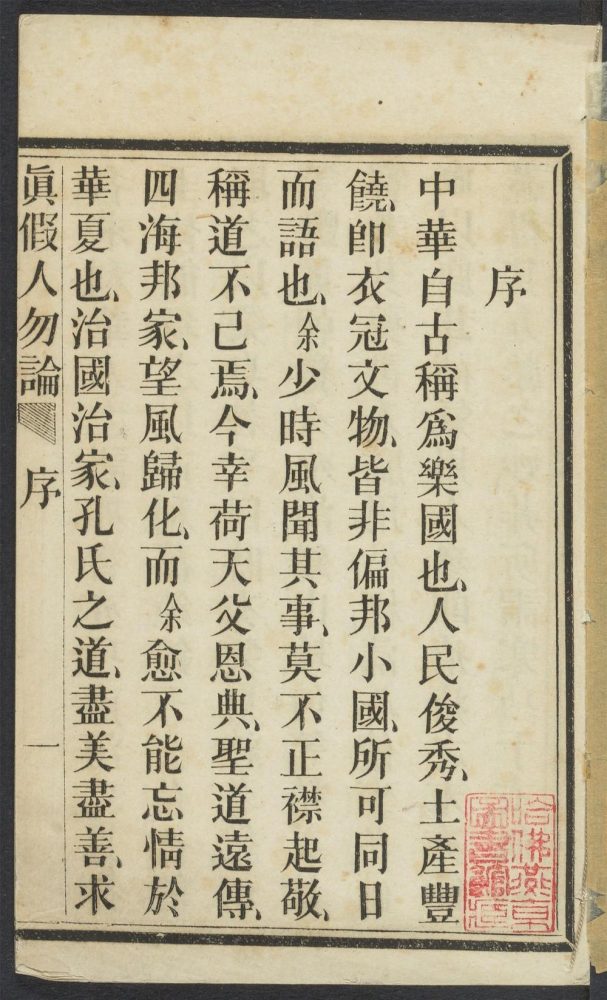 序
中華自古稱爲樂國也、人民俊秀、土產豐
饒、卽衣冠文物、皆非偏邦小國、所可同日
而語也、余少時風聞其事、莫不正襟起敬、
稱道不已焉、今幸荷天父恩典、聖道遠傳、
四海邦家、望風歸化、而余愈不能忘情於
華夏也、治國治家、孔氏之道、盡美盡善、求
眞假人勿論 序 一
哈佛燕京
圖書館藏